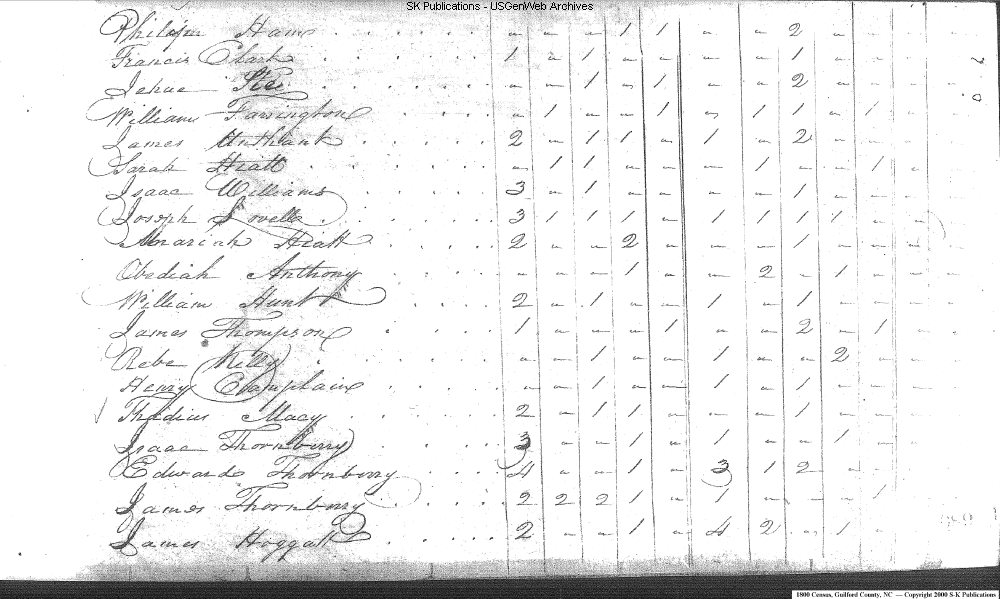 SK Publications - USGenWeb Archives
Philip Ham " " " 1 1 " " 2 " " "
Francis Clark 1 " 1 " " " " 1 " " "
Jehue " " 1 " 1 " " 2 " " "
William Farrington " 1 " " 1 " 1 1 " 1 "
James Unthank 2 " 1 1 " 1 " 2 " " "
Sarah Hiatt " 1 1 " " " 1 " " 1 "
Isaac Williams 3 " 1 " " " " 1 " " "
Joseph Lovell 3 1 1 1 " 1 1 1 1 " "
Mnariah Hiatt 2 " " 2 " " " 1 " " "
Obediah Anthony " " " 1 " " 2 " 1 " "
William Hunt 2 " 1 " " 1 " 1 " " "
James Thompson 1 " " " 1 " " 2 " 1 "
Rebe Kelly " " 1 " " 1 " " 2 " "
Henry Clamplain " " 1 " " 1 " 1 " " "
Thadius Macy 2 " 1 1 " " " 1 " " "
Isaac Thornberry 3 " " 1 " 1 " " 1 " "
Edward Thornberry 4 " " 1 " 3 1 2 "
James Thornberry 2 2 2 1 " 1 " " " 1
James Hoggatt 2 " " 1 " 4 2 " 1 " "
1800 Census, Guilford County, NC — Copyright 2000 S-K Publications